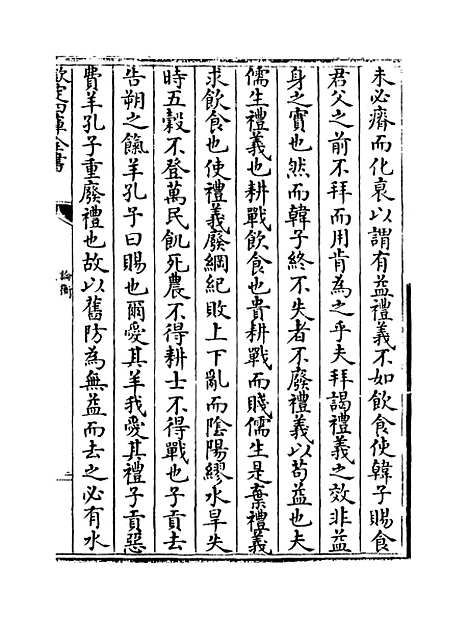 未必瘠而化衰以謂有益禮義不如飲食使韓子賜食
君父之前不拜而用肯為之乎夫拜謁禮義之效非益
身之實也然而韓子終不失者不廢禮義以苟益也夫
儒生禮義也耕戰飲食也貴耕戰而賤儒生是棄禮義
求飲食也使禮義廢綱紀敗上下亂而陰陽繆水旱失
時五穀不登萬民飢死農不得耕士不得戰也子貢去
告朔之餼羊孔子曰賜也爾愛其羊我愛其禮子貢惡
費羊孔子重廢禮也故以舊防為無益而去之必有水
欽定四庫全書
論衡
二